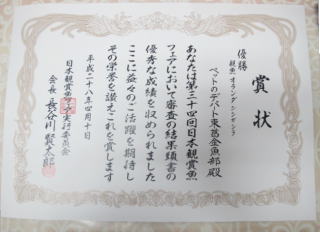 賞状
優勝
観魚 オランダシシガシラ
ペットのデパート東葛金魚部殿
あなたは第三十四回日本観賞魚
フェアにおいて審査の結果頭書の
優秀な成績を収められました
ここに益々のご活躍を期待し
その栄誉を讃えこれを賞します
平成二十八年四月十日
日本観賞魚フェア実行委員会
会長 長谷川